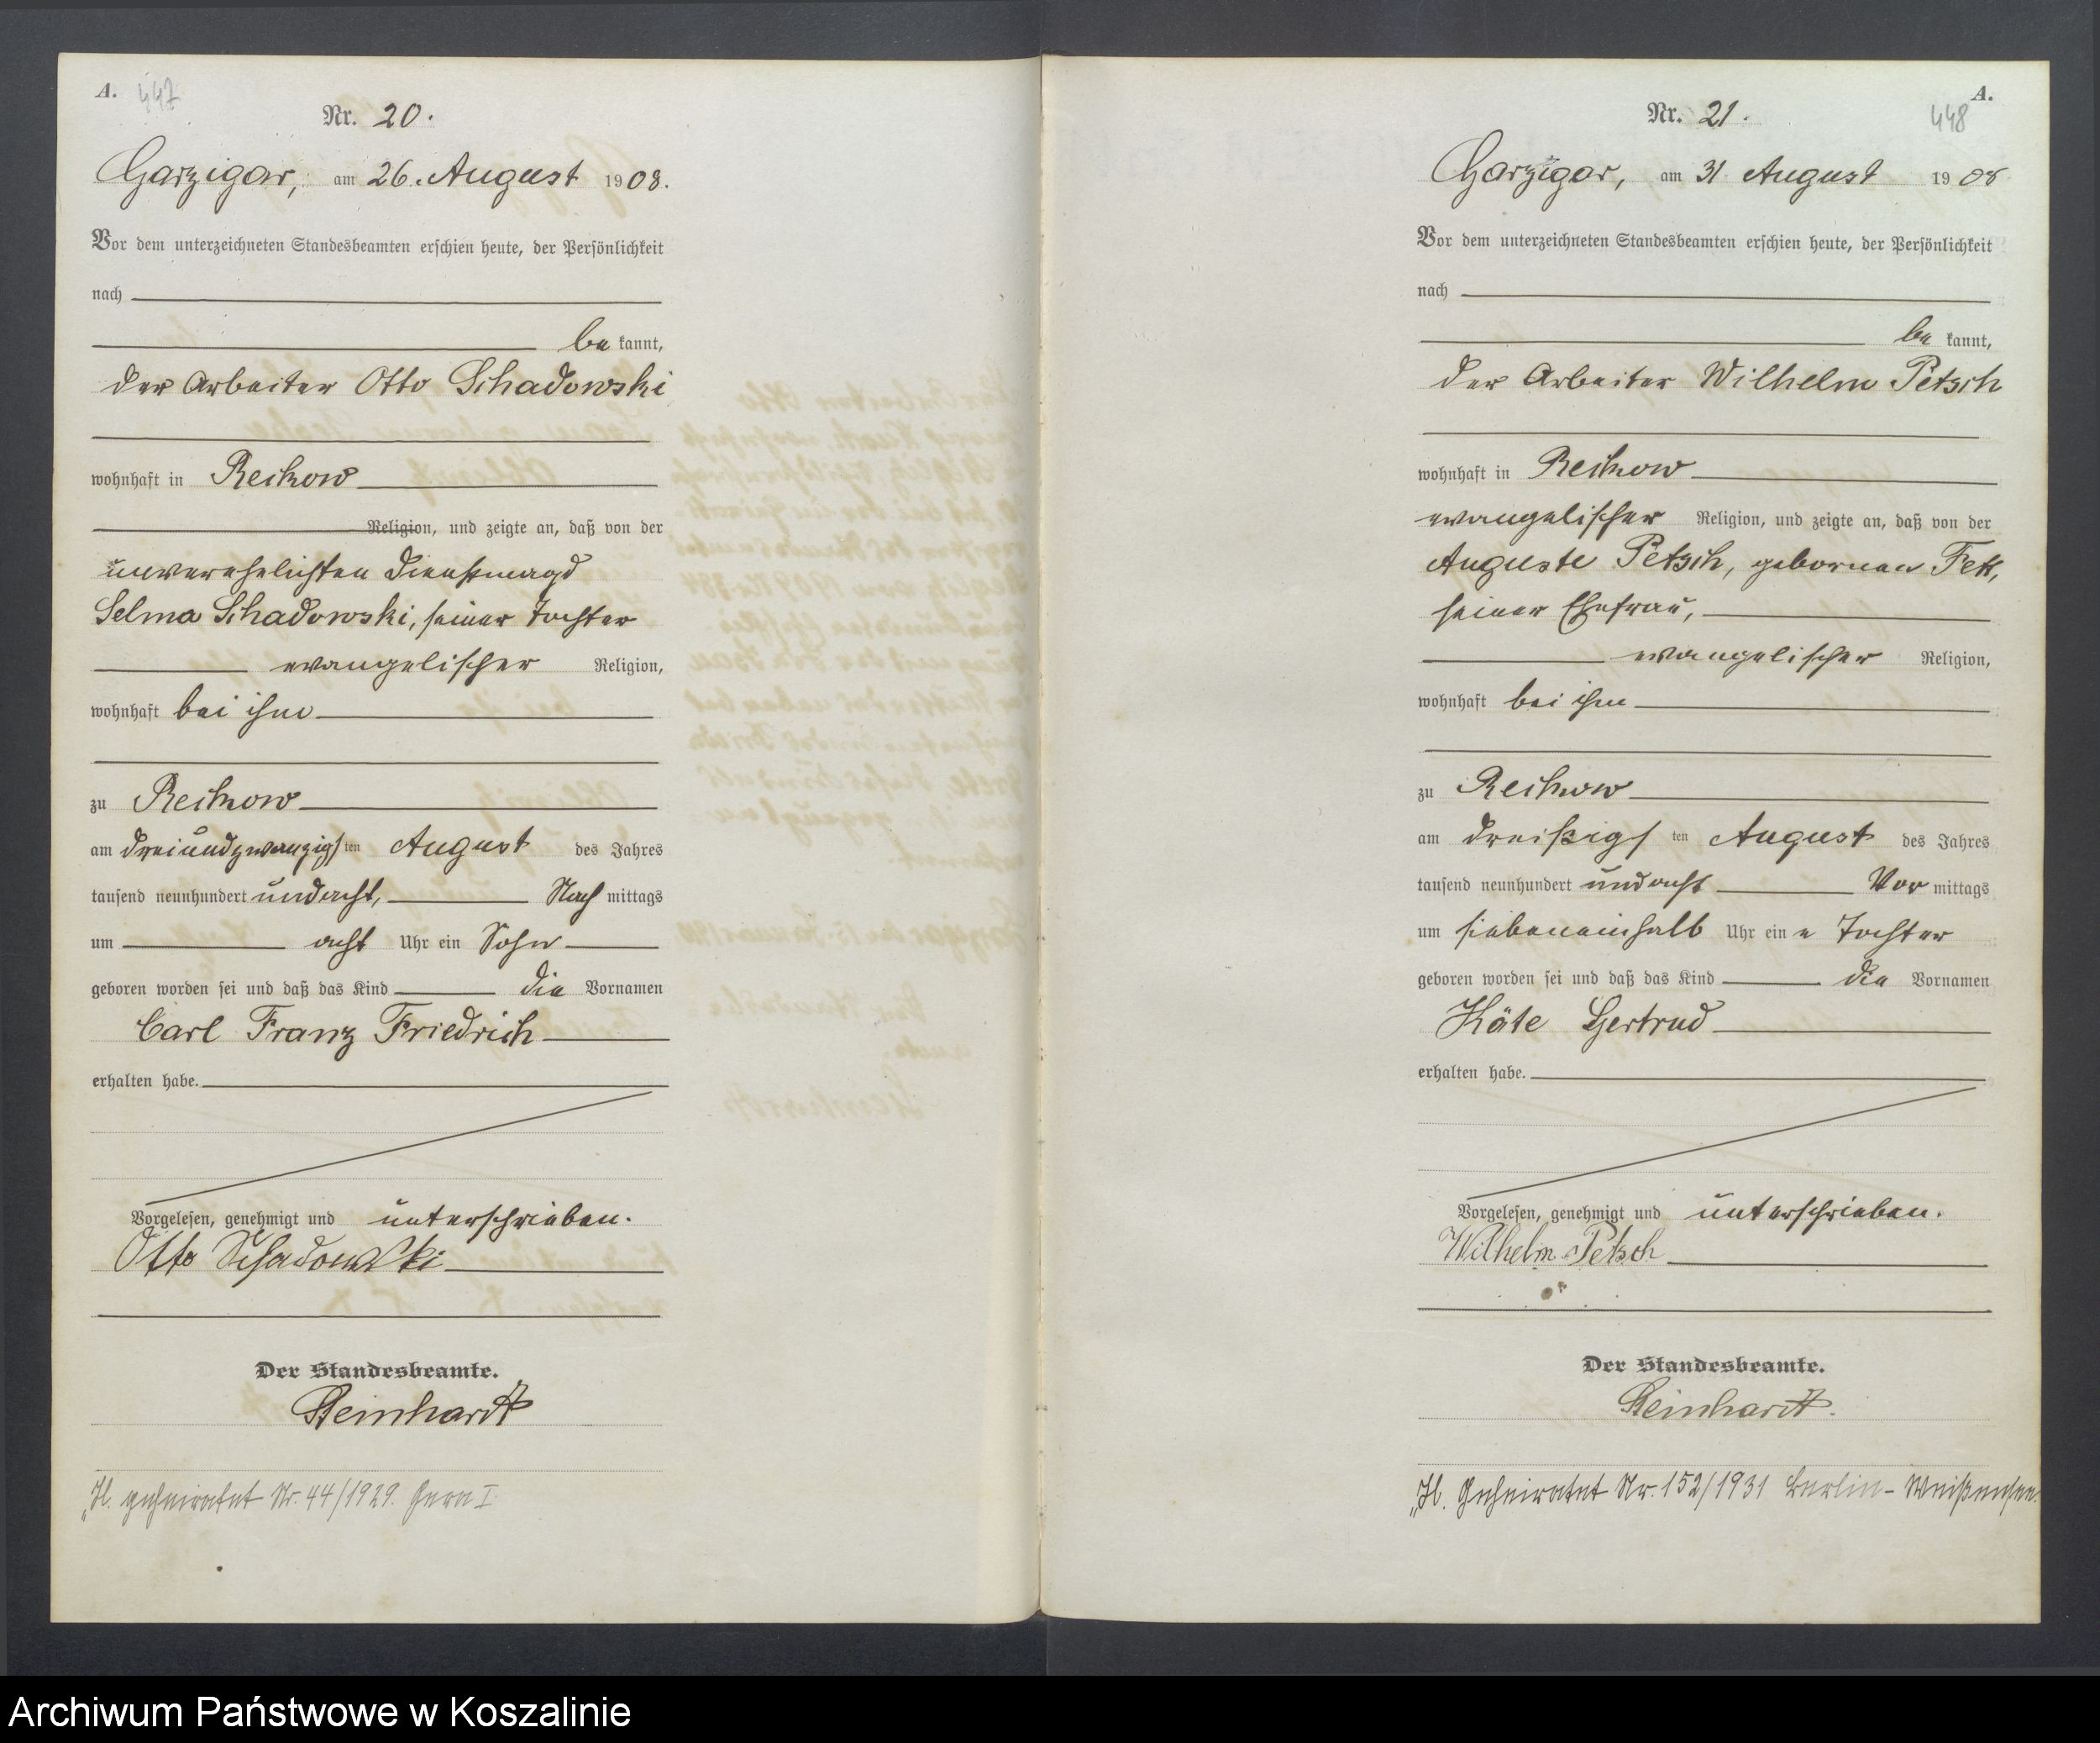 A. 447
Nr. 20.
Garzigar, am 26. August 1908.
Vor dem unterzeichneten Standesbeamten erschien heute, der Persönlichkeit
nach
be kannt,
der Arbeiter Otto Schadowski
wohnhaft in Reckow
Religion, und zeigte an, daß von der
unverehelichten Dienstmagd
Selma Schadowski, seiner Tochter
evangelischer Religion,
wohnhaft bei ihm
zu Reckow
am dreiundzwanzigsten August des Jahres
tausend neunhundert undacht, Nach mittags
um acht Uhr ein Sohn
geboren worden sei und daß das Kind die Vornamen
Carl Franz Friedrich
erhalten habe.
Vorgelesen, genehmigt und unterschrieben.
Otto Schadowski
Der Standesbeamte.
Reinhardt
geheiratet Nr. 44/1929. Gera I
A.
448
Nr. 21.
Garzigar, am 31 August 1908
Vor dem unterzeichneten Standesbeamten erschien heute, der Persönlichkeit
nach
be kannt,
der Arbeiter Wilhelm Petsch
wohnhaft in Reckow
evangelischer Religion, und zeigte an, daß von der
Auguste Petsch, geborenen
seiner Ehefrau,
evangelischer Religion,
wohnhaft bei ihm
zu Reckow
am dreißigsten August des Jahres
tausend neunhundert undacht Vor mittags
um siebeneinhalb Uhr eine Tochter
geboren worden sei und daß das Kind die Vornamen
Käte Gertrud
erhalten habe.
Vorgelesen, genehmigt und unterschrieben.
Wilhelm Petsch
Der Standesbeamte.
Reinhardt.
Geheiratet Nr. 152/1931 Berlin-Weißensee.
Archiwum Państwowe w Koszalinie